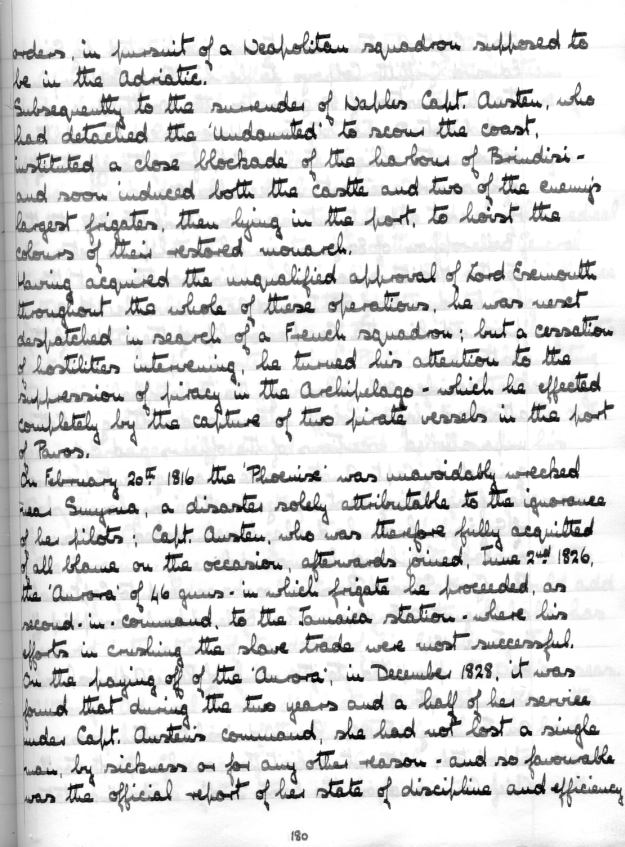 orders, in pursuit of a Neapolitan squadron supposed to
be in the Adriatic.
Subsequently to the surrender of Naples Capt. Austen, who
had detached the 'Undaunted' to scour the coast,
instituted a close blockade of the harbour of Brindisi -
and soon induced both the castle and two of the enemy's
largest frigates, then lying in the port, to hoist the
colours of their restored monarch.
Having acquired the unqualified approval of Lord Exmouth
throughout the whole of these operations, he was next
despatched in search of a French squadron; but a cessation
of hostilities intervening, he turned his attention to the
suppression of piracy in the Archipelago - which he effected
completely by the capture of two pirate vessels in the port
of Paros.
On February 20th 1816 the 'Phoenix' was unavoidably wrecked
near Smyrna, a disaster solely attributable to the ignorance
of her pilots; Capt. Austen, who was therefore fully acquitted
of all blame on the occasion, afterwards joined, June 2nd 1826,
the 'Aurora' of 46 guns - in which frigate he proceeded, as
second-in-command, to the Jamaica station - where his
efforts in crushing the slave trade were most successful.
On the paying off of the 'Aurora', in December 1828, it was
found that during the two years and a half of her service
under Capt. Austen's command, she had not lost a single
man, by sickness or for any other reason - and so favourable
was the official report of her state of discipline and efficiency
180